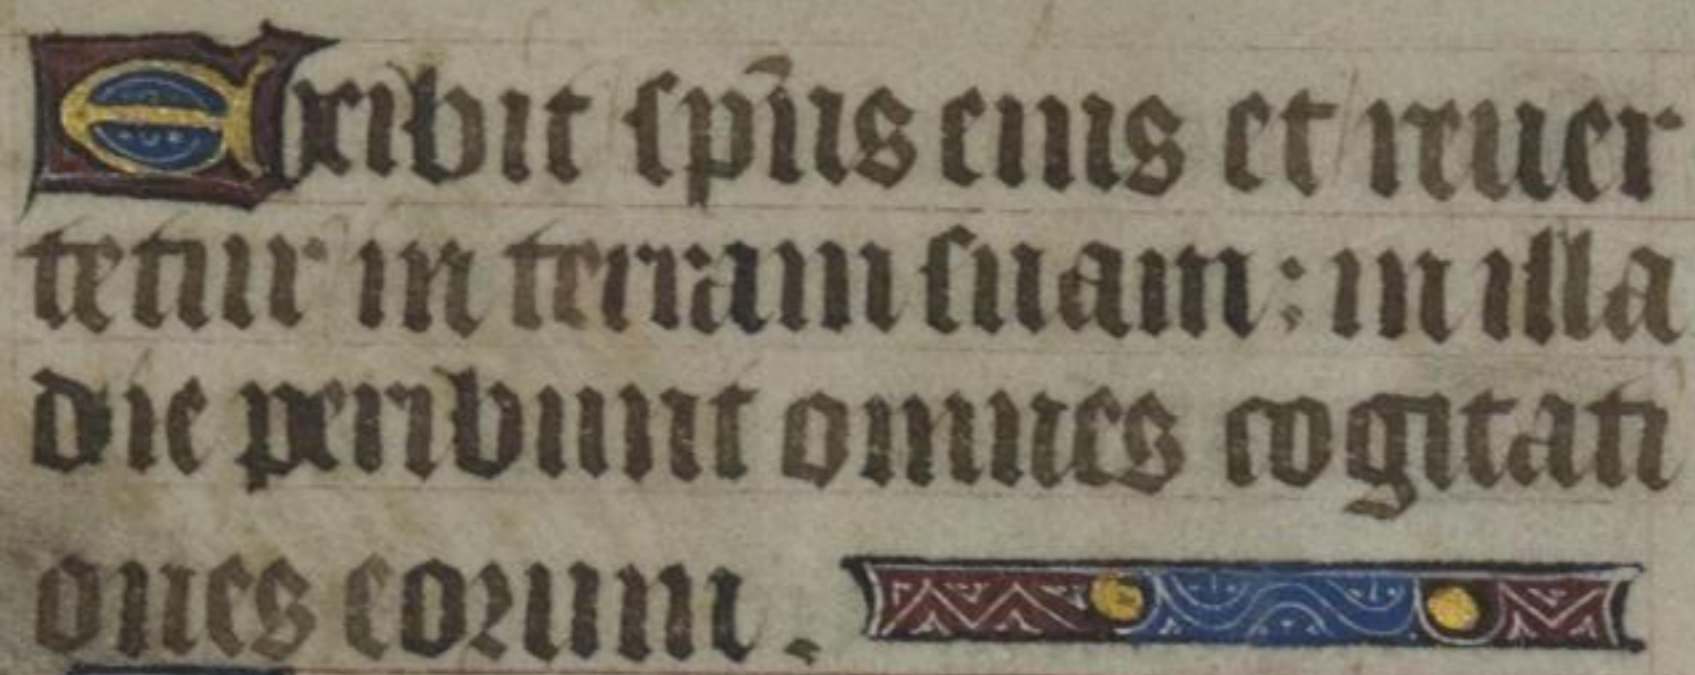 Exibit sp̄us eius et reuer
tetur in terram suam: in illa
die peribunt omnes cogitati
ones eorum.